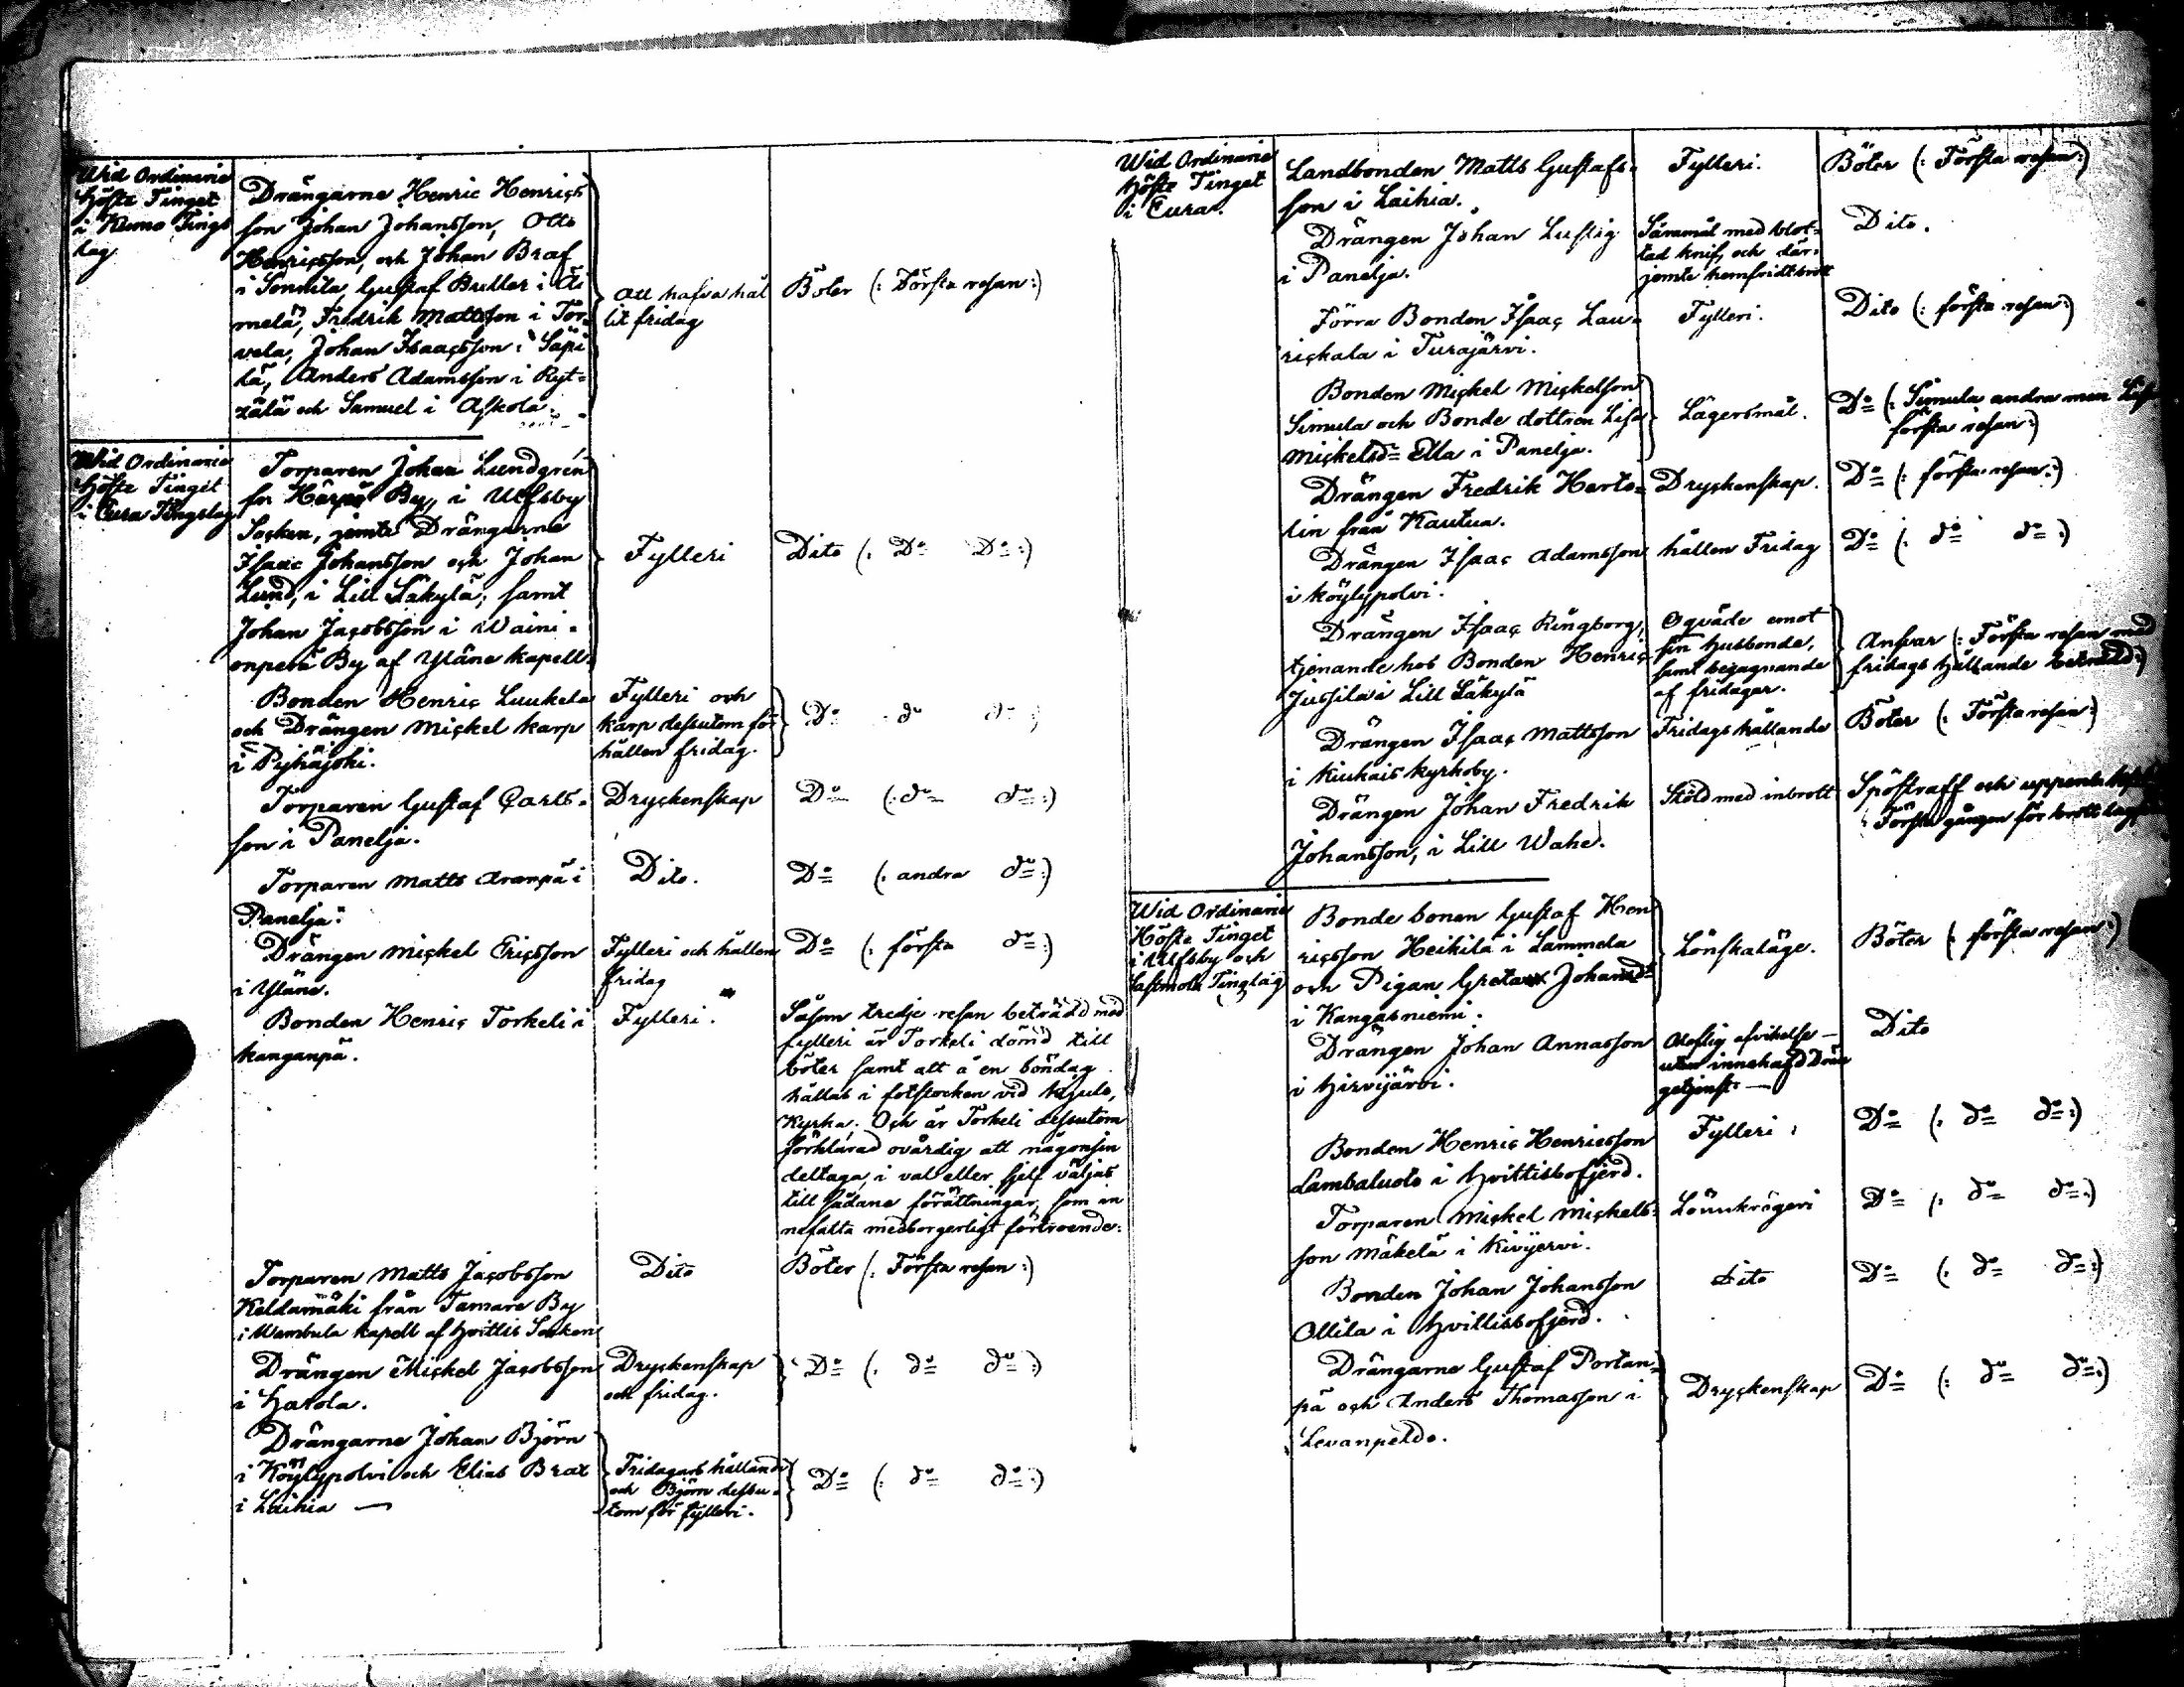 Wid Ordinarie
Höste Tinget
i Kumo Tings
lag
Drängarne Henric Henrics
son Johan Johansson, Otto
Henricsson, och Johan Braf
i Sonnila, Gustaf Buller i Äi
melä, Fredrik Mattsson i Tor-
vela, Johan Isaacsson i Säpi
lä, Anders Adamsson i Ryt-
sälä och Samuel i Askola.
Att hafva hål
lit fridag
Böter (: Första resan :)
Wid Ordinarie
Höste Tinget
i Eura Tingslag
Torparen Johan Lundgrén
By, i Ulfsby
Socken, jemte Drängarne
Isaac Johansson och Johan
Lund, i Lill Säkylä, samt
Johan Jacobsson i Waini-
enperä By af Yläne kapell.
Fylleri
Dito (: Do Do :)
Bonden Henric Luukela
och Drängen Mickel Karp
i Pyhäjoki.
Fylleri och
Karp dessutom för
hållen fridag.
Do do do :)
Torparen Gustaf Carls-
son i Panelja.
Dryckenskap
Do (: do do :)
Torparen Matts Aronpä i
Panelja.
Dito.
Do (: andra do :)
Drängen Mickel Ericsson
i Yläne.
Fylleri och hållen
fridag
Do (: första do :)
Bonden Henric Torkeli i
Kanganpä.
Fylleri.
Såsom tredje resan beträdd med
fylleri är Torkeli dömd till
böter samt att å en böndag
hållas i fotstocken vid Kjulo,
Kyrka. Och är Torkeli dessutom
förklarad ovärdig att någonsin
deltaga, i val eller sjelf väljas
till sådane förättningar, som in
nefatta medborgerligt förtroende.
Torparen Matts Jacobsson
Keldamäki från Tamare By
i Wambula kapell af Hvittis Socken
Dito
Böter (: Första resan :)
Drängen Mickel Jacobsson
i Harola.
Dryckenskap
och fridag.
Do (: do do :)
Drängarne Johan Björn
i Köylypolvi och Elias Brax
i Laihia —
Fridagars hållande
och Björn dessu-
tom för fylleri.
Do (: do do :)
Wid Ordinarie
Höste Tinget
i Eura.
Landbonden Matts Gustafs-
son i Laihia.
Fylleri.
Böter (: Första resan :)
Drängen Johan Lustig
i Panelja.
Sårmål med blot-
tad knif, och där-
jemte hemfridsbrott
Dito.
Förra Bonden Isaac Lau-
rickala i Turajärvi.
Fylleri.
Dito (: första resan :)
Bonden Mickel Mickelson
Simula och Bonde dottren Lisa
Mickelsd= Ella i Panelja.
Lägersmål.
Do (: Simula andra men Lisa
första resan :)
Drängen Fredrik Herts-
lin från Kautua.
Dryckenskap.
Do (: första resan :)
Drängen Isaac Adamsson
i Köylypolvi.
hållen Fridag
Do (: do do :)
Drängen Isaac Ringborg,
tjenande hos Bonden Henric
Jussila i Lill Säkylä
Oqväde emot
sin husbonde,
samt begagnande
af fridagar.
Ansvar (: Första resan med
fridags hållande beträdd :)
Drängen Isaac Mattsson
i Kiukais kyrkoby.
Fridags hållande
Böter (: Första resan :)
Drängen Johan Fredrik
Johansson, i Lill Wahe.
Stöld med inbrott
Spöstraff och uppenbar
Första gången för brott
Wid Ordinarie
Höste Tinget
i Ulfsby och
Tinglag
Bonde sonen Gustaf Hen
ricsson Heikilä i Lammela
och Pigan Greta Johansdr
i Kangasniemi.
Lönskaläge.
Böter (: första resan :)
Drängen Johan Annasson
i Hirvijärvi.
Oloflig afvikelse
utur innehafd
getjenst. —
Dito
Bonden Henric Henricsson
Lambaluoto i Hvittisbofjerd.
Fylleri.
Do (: do do :)
Torparen Mickel Mickels-
son Mäkelä i Kivijervi.
Lönnkrögeri
Do (: do do :)
Bonden Johan Johansson
Ollila i Hvittisbofjerd.
Dito
Do (: do do :)
Drängarne Gustaf Portan-
pä och Anders Thomasson i
Levanpeldo.
Dryckenskap
Do (: do do :)